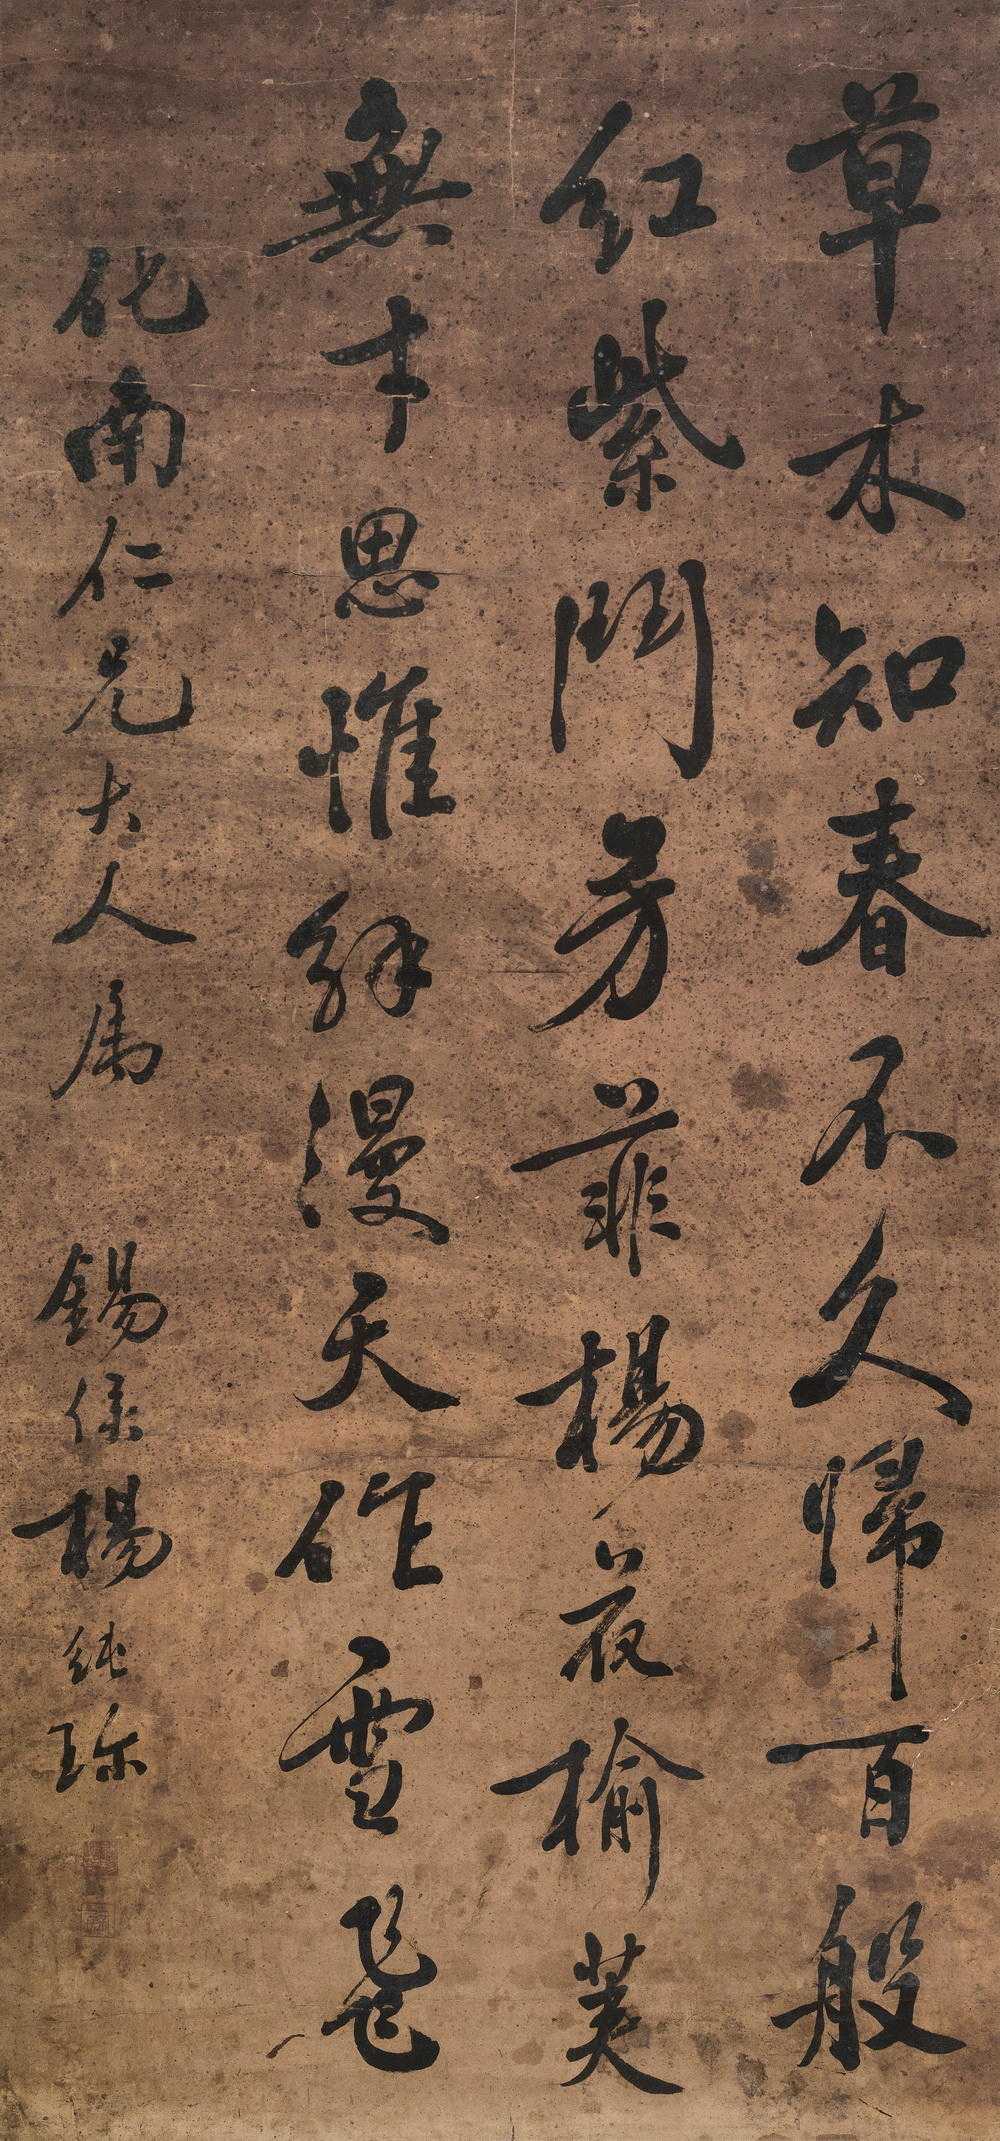 草木知春不久歸百般
紅紫鬥芳菲楊花榆莢
無才思惟解漫天作雪飛
化南仁兄大人属 錫楊純珍